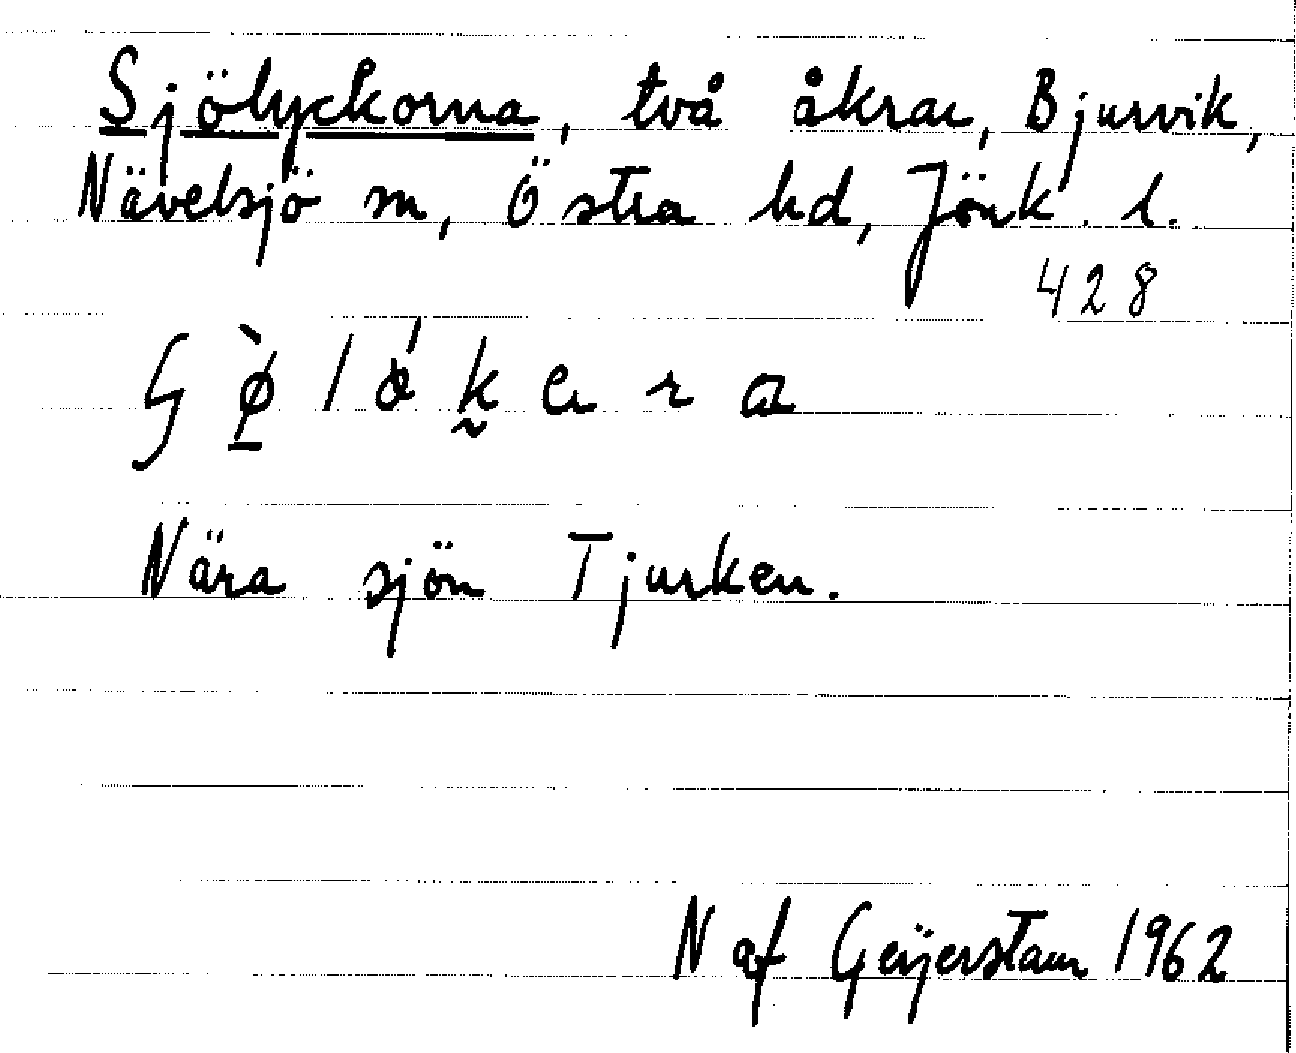 Sjölyckorna, två åkrar, Bjurvik,
Nävelsjö sn, Östra hd, Jönk. l.
428
Nära sjön Tjurken.
N af Geijerstam 1962